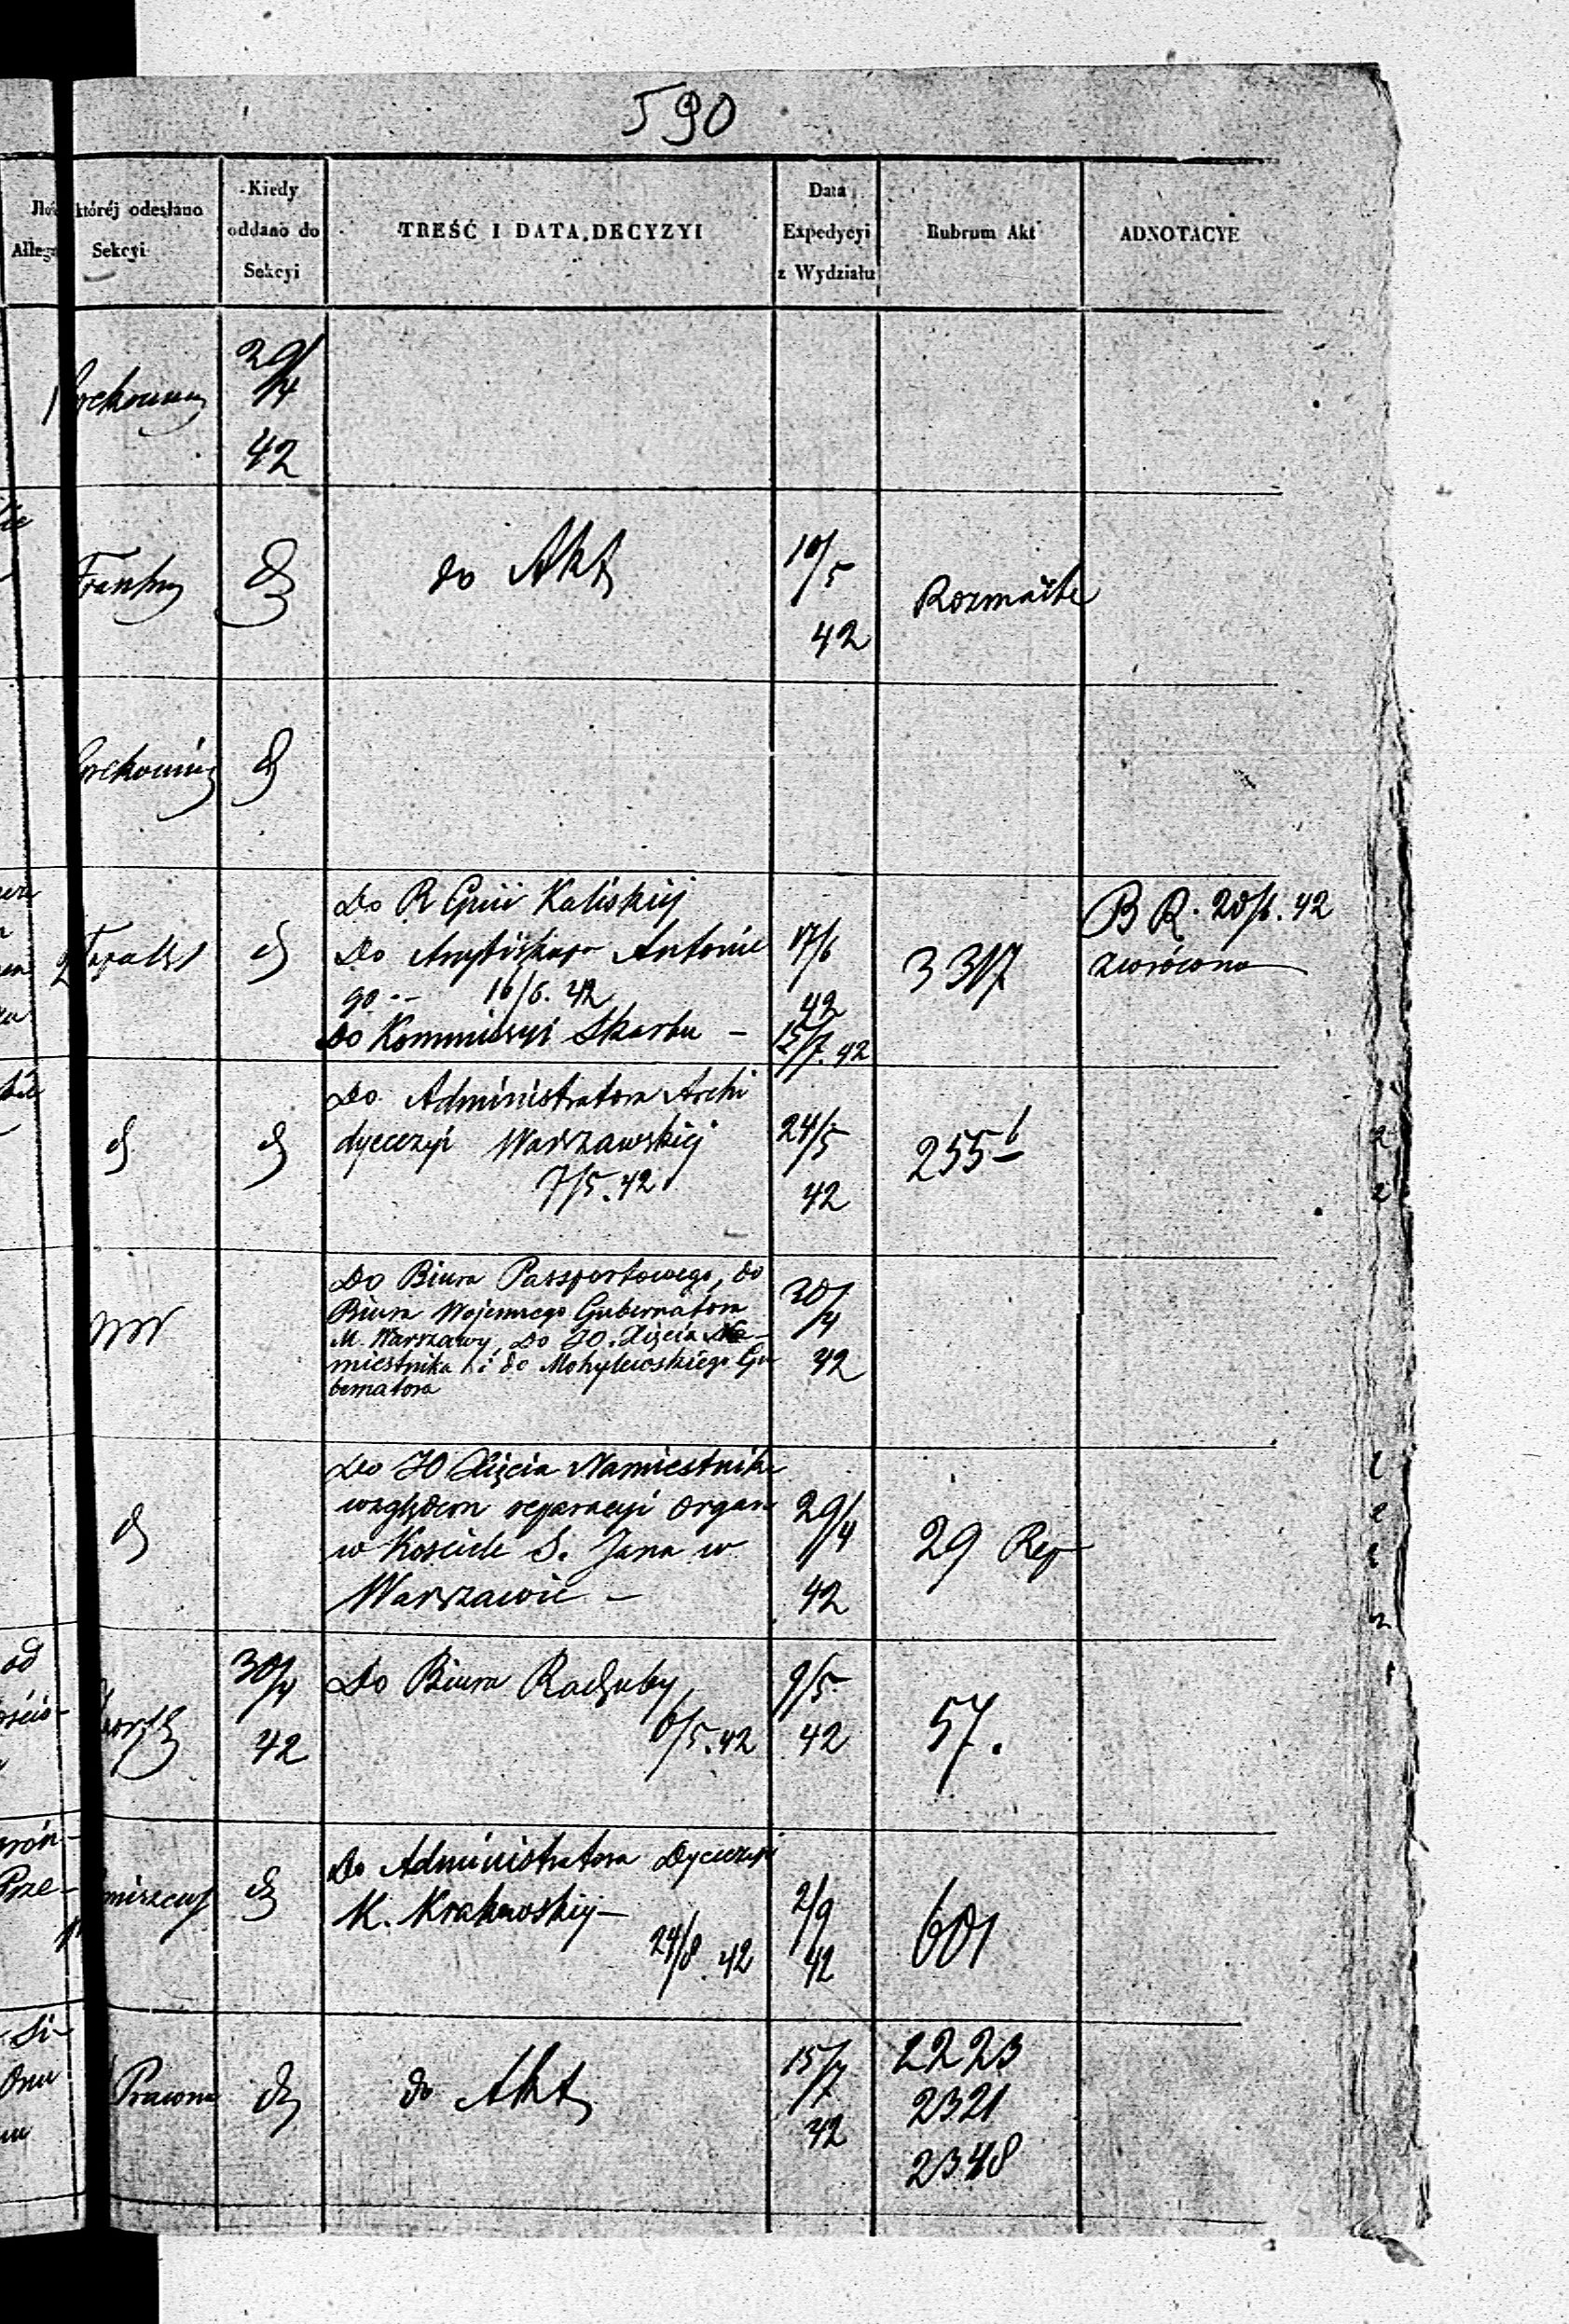 590
któréj odesłano
Sekcyi
Kiedy
oddano do
Sekcyi
TREŚĆ I DATA DECYZYI
Data
Expedycyi
z Wydziału
Rubrum Akt
ADNOTACYE
29/4
42
do Akt
10/5
42
Rozmaite
Do R Gnii Kaliskiej
Do Antonie
go -- 16/6. 42
Do Kommissyi Skarbu -
17/6
42
15/7. 42
3317
B R. 20/6. 42
zwrócono
Do Administratora Archi
dyecezyi Warszawskiej
7/5. 42
24/5
42
255 b
Do Biura Passportowego, do
Biura Wojennego Gubernatora
M. Warszawy, Do JO. Xięcia Na-
miestnika i do Mohylewskiego Gu
bernatora
30/4
42
Do JO Xięcia Namiestnika
względem reparacyi organ
w Kościele S. Jana w
Warszawie -
29/4
42
29 Rep
30/4
42
Do Biura Rachuby
6/5. 42
9/5
42
57.
Do Administratora Dyecezyi
K. Krakowskiej -
24/8. 42
2/9
42
601
Prawna
do Akt
15/7
42
2223
2321
2348